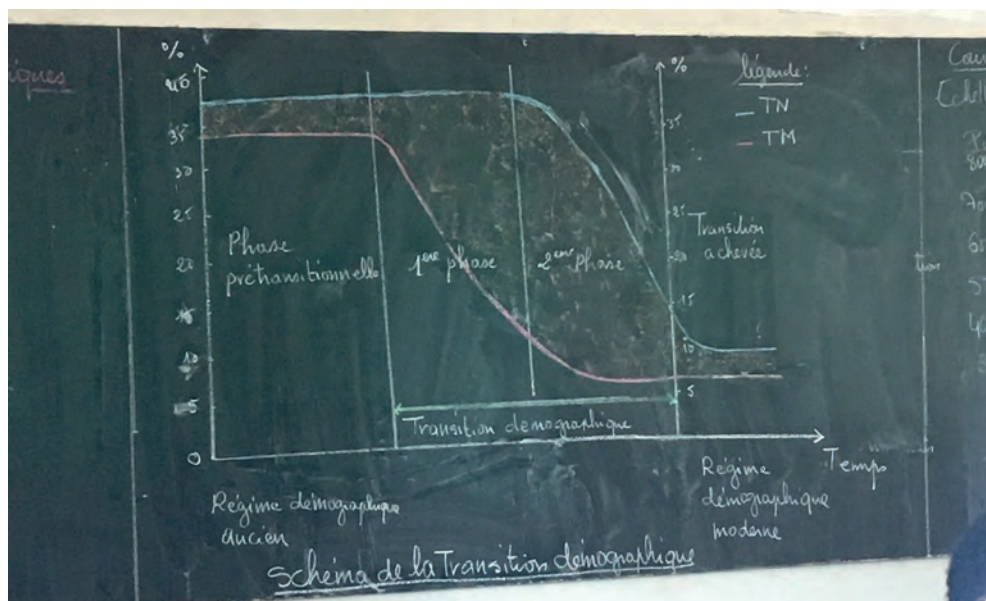 iques
%
40
35
30
25
20
15
10
5
0
%
35
30
25
20
15
10
5
légende:
TN
TM
Phase
prétransitionnelle
1ère phase
2ème phase
Transition
achevée
Transition démographique
Temps
Régime démographique
ancien
Régime
démographique
moderne
Schéma de la Transition démographique
Echell